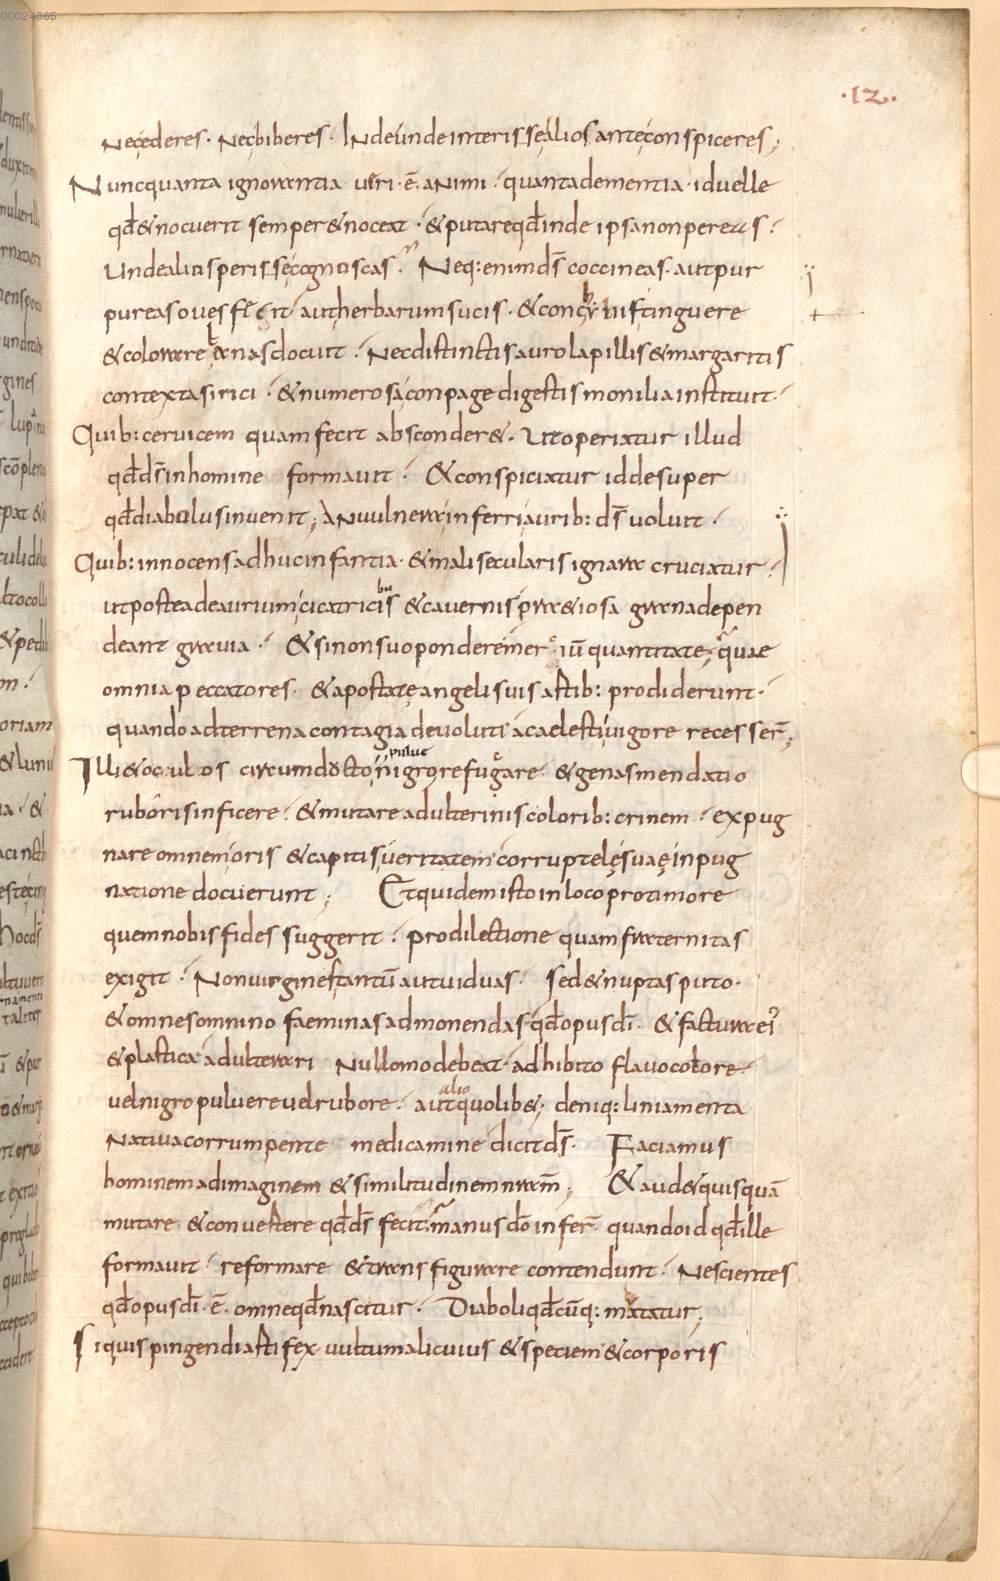 00024865
·12·
Necederes · Nec biberes · Inde unde interisse alios ante conspiceres;
Nunc quanta ignorantia ueri · ē animi · quanta dementia · id uelle
qđ & nocuerit semper & noceat · & putare qđ inde ipsa non pereas ·
Unde alios perisse cognoscas · Neq: enim dš coccineas · aut pur
pureas oues fecit aut herbarum sucis · & conchyliis tinguere
& colorare lanas docuit · Nec distinctis auro lapillis & margaritis
contexta sirici · & numerosa conpage digestis monilia instituit ·
Quib: ceruicem quam fecit absconder& · Ut operiatur illud
qđ dš in homine formauit · & conspiciatur id desuper
qđ diabolus inuenit; An uulnera inferri aurib: dš uoluit ·
Quib: innocens adhuc infantia · & mali secularis ignara cruciatur ·
ut postea de aurium cicatricibus & cauernis pr&iosa grana depen
deant grauia · & si non suo pondere mercium quantitate · quae
omnia peccatores · & apostate angeli suis astib: prodiderunt ·
quando ad terrena contagia deuoluti a caelesti uigore recesser̄;
Illi & oculos circumducto nigrore fugare · & genas mendatio
puluere
ruboris inficere · & mutare adulterinis colorib: crinem · expug
nare omnem oris & capitis ueritatem corruptele suae inpug
natione docuerunt; Et quidem isto in loco pro timore
quem nobis fides suggerit · pro dilectione quam fraternitas
exigit · Non uirgines tantū aut uiduas · sed & nuptas puto ·
& omnes omnino faeminas admonendas qđ opus dī · & factura ei'
& plastica adulterari Nullo modo debeat · adhibito flauo colore ·
uel nigro puluere uel rubore · aut quolib& · deniq: liniamenta
alio
Natiua corrumpente medicamine dicit dš · Faciamus
hominem ad imaginem & similitudinem nram̄; & aud& quisquā
mutare & conuertere qđ dš fecit · manus dō infer̄ quando id qđ ille
formauit · reformare & transfigurare contendunt · Nescientes
qđ opus dī · ē · omne qđ nascitur · Diaboli qđ cūq: mutatur;
Si quis pingendi astifex uultum alicuius & speciem & corporis